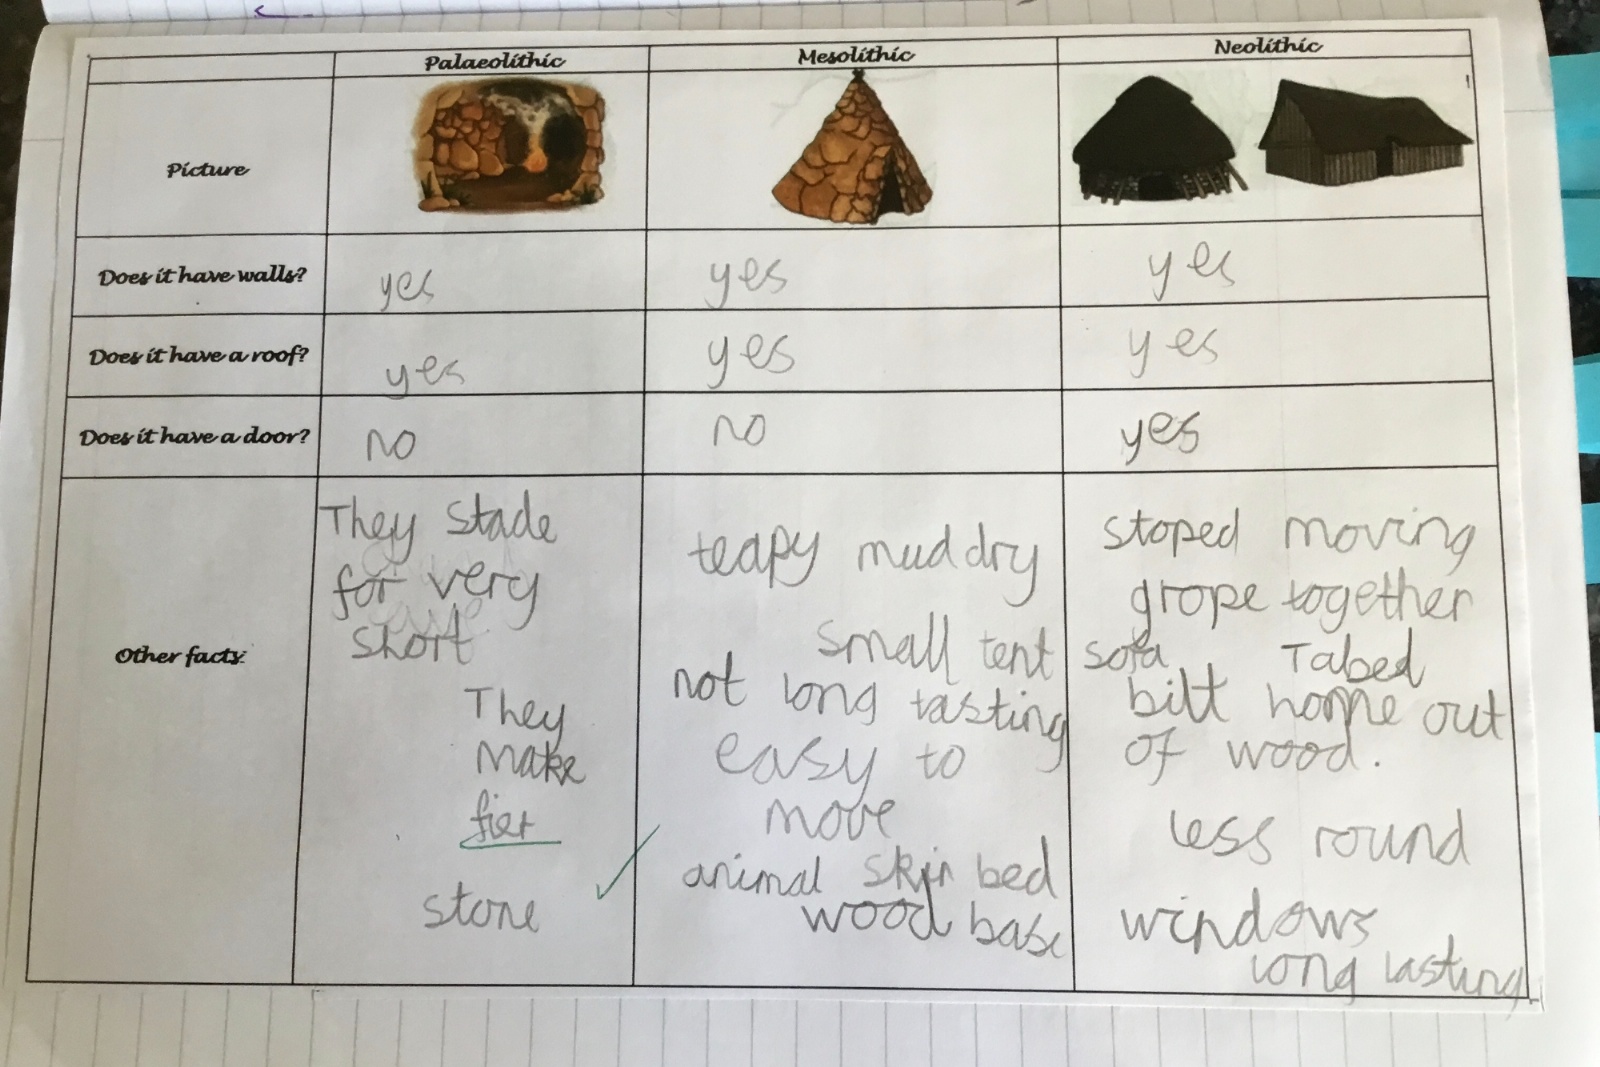 Palaeolithic Mesolithic Neolithic
Picture
Does it have walls? yes yes yes
Does it have a roof? yes yes yes
Does it have a door? no no yes
Other facts:
They stade
for very
short
They
make
fier
stone
teapy mud dry
small tent
not long lasting
easy to
move
animal skin bed
wood base
stoped moving
grope together
sofa Tabed
bilt home out
of wood.
less round
windows
long lasting